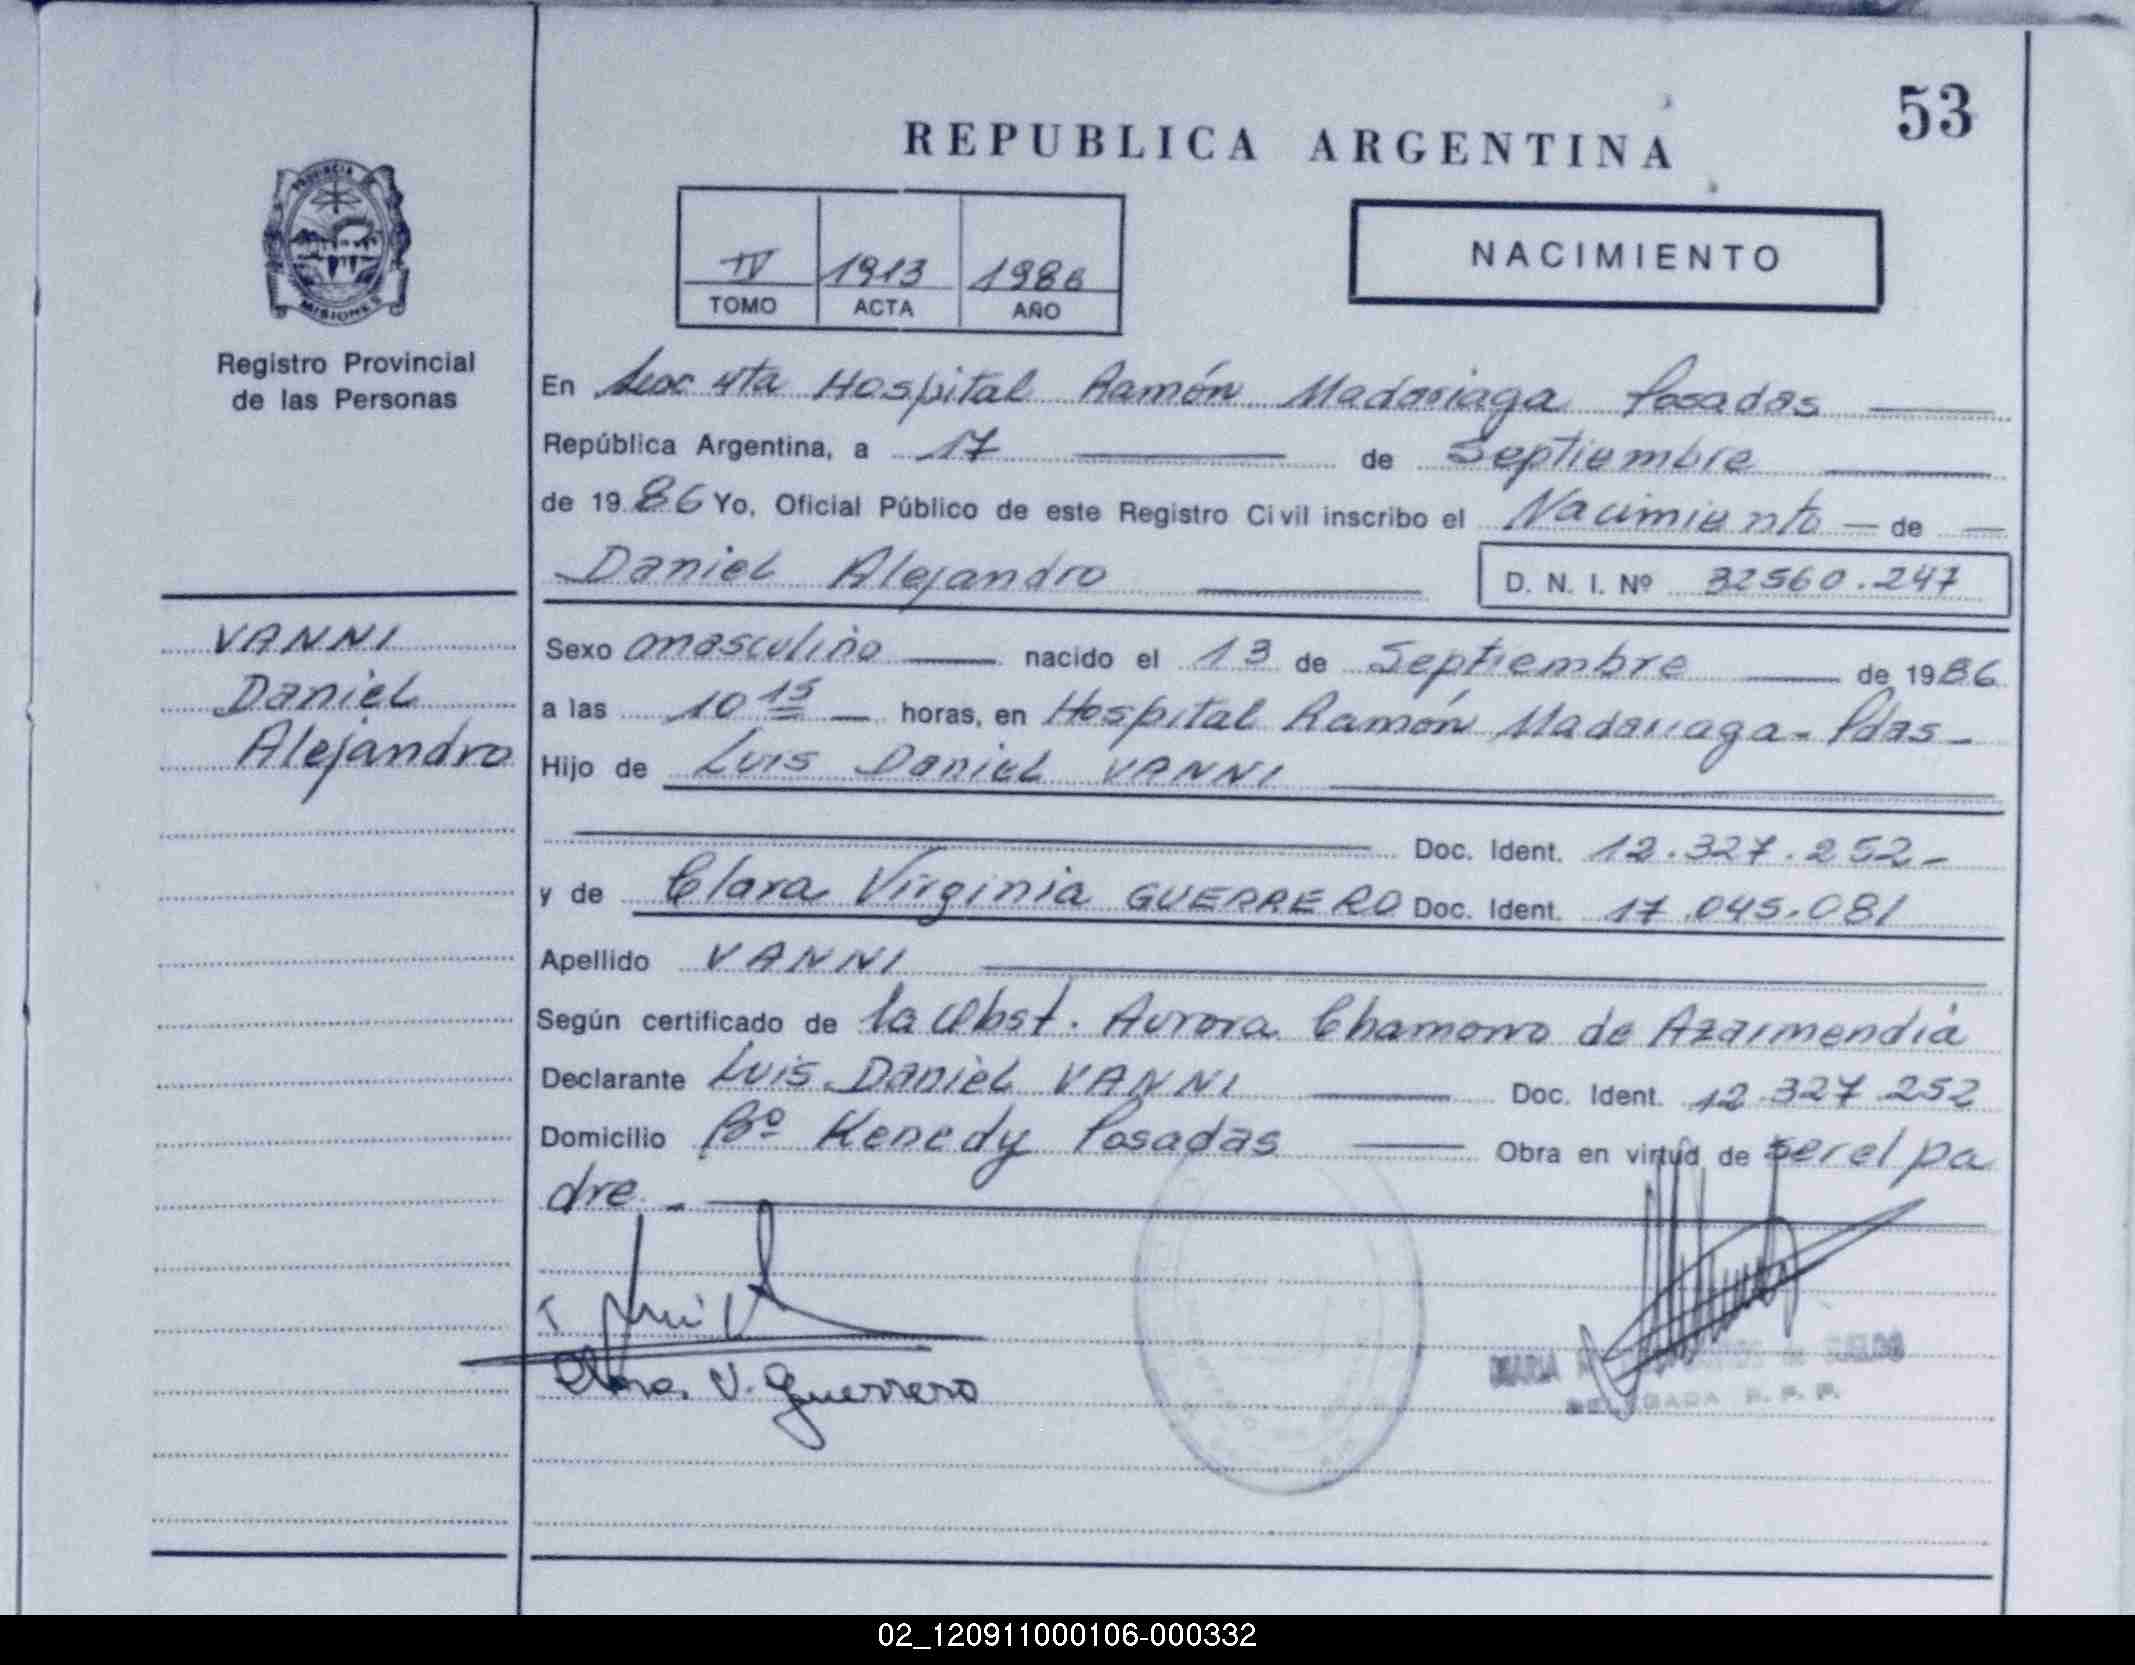 53
REPUBLICA ARGENTINA
PROVINCIA DE
MISIONES
Registro Provincial
de las Personas
IV 1913 1986
TOMO ACTA AÑO
NACIMIENTO
En Secc 4ta Hospital Ramón Madariaga Posadas
República Argentina, a 17 de Septiembre
de 1986 Yo, Oficial Público de este Registro Civil inscribo el Nacimiento — de —
Daniel Alejandro D. N. I. Nº 32560.247
VANNI
Daniel
Alejandro
Sexo masculino nacido el 13 de Septiembre de 1986
a las 10 15 — horas, en Hospital Ramón Madariaga - Pdas -
Hijo de Luis Daniel VANNI
Doc. Ident. 12.327.252 -
y de Clara Virginia GUERRERO Doc. Ident. 17.045.081
Apellido VANNI
Según certificado de la Obst. Aurora Chamorro de Azarmendia
Declarante Luis Daniel VANNI Doc. Ident. 12.327.252
Domicilio Bº Kenedy Posadas Obra en virtud de ser el pa
dre. -
Clara V. Guerrero
MARIA
DELEGADA R. P. P.
02_120911000106-000332